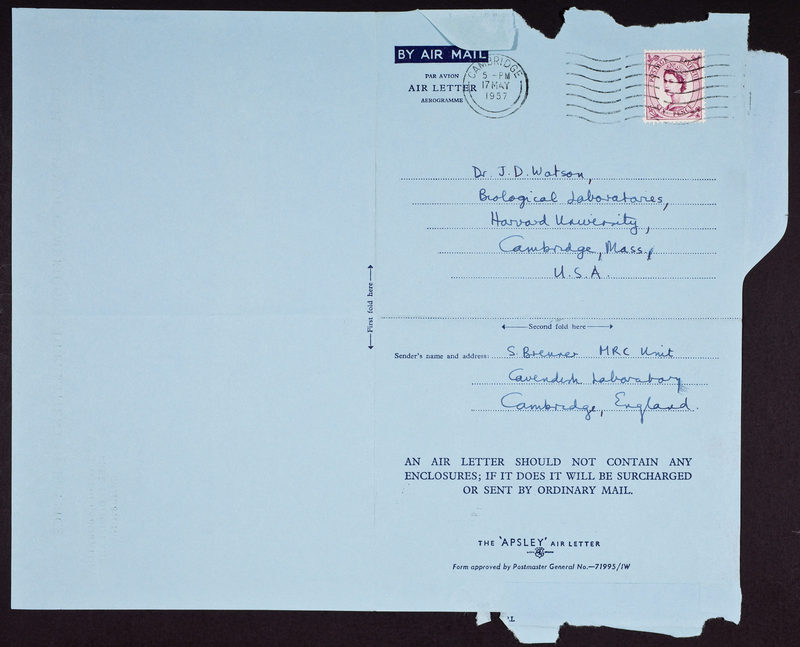 BY AIR MAIL
PAR AVION
AIR LETTER
AEROGRAMME
CAMBRIDGE
5 - PM
17 MAY
1957
Dr. J. D. Watson,
Biological Laboratories,
Harvard University,
Cambridge, Mass,
U.S.A.
First fold here
Second fold here
Sender's name and address: S. Brenner MRC Unit
Cavendish Laboratory
Cambridge, England.
AN AIR LETTER SHOULD NOT CONTAIN ANY
ENCLOSURES; IF IT DOES IT WILL BE SURCHARGED
OR SENT BY ORDINARY MAIL.
THE 'APSLEY' AIR LETTER
Form approved by Postmaster General No.—71995/1W